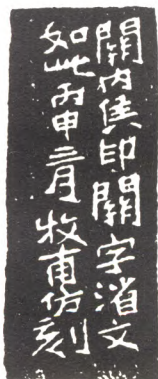 關内侯印關字渻文
如此丙申二月牧甫仿刻